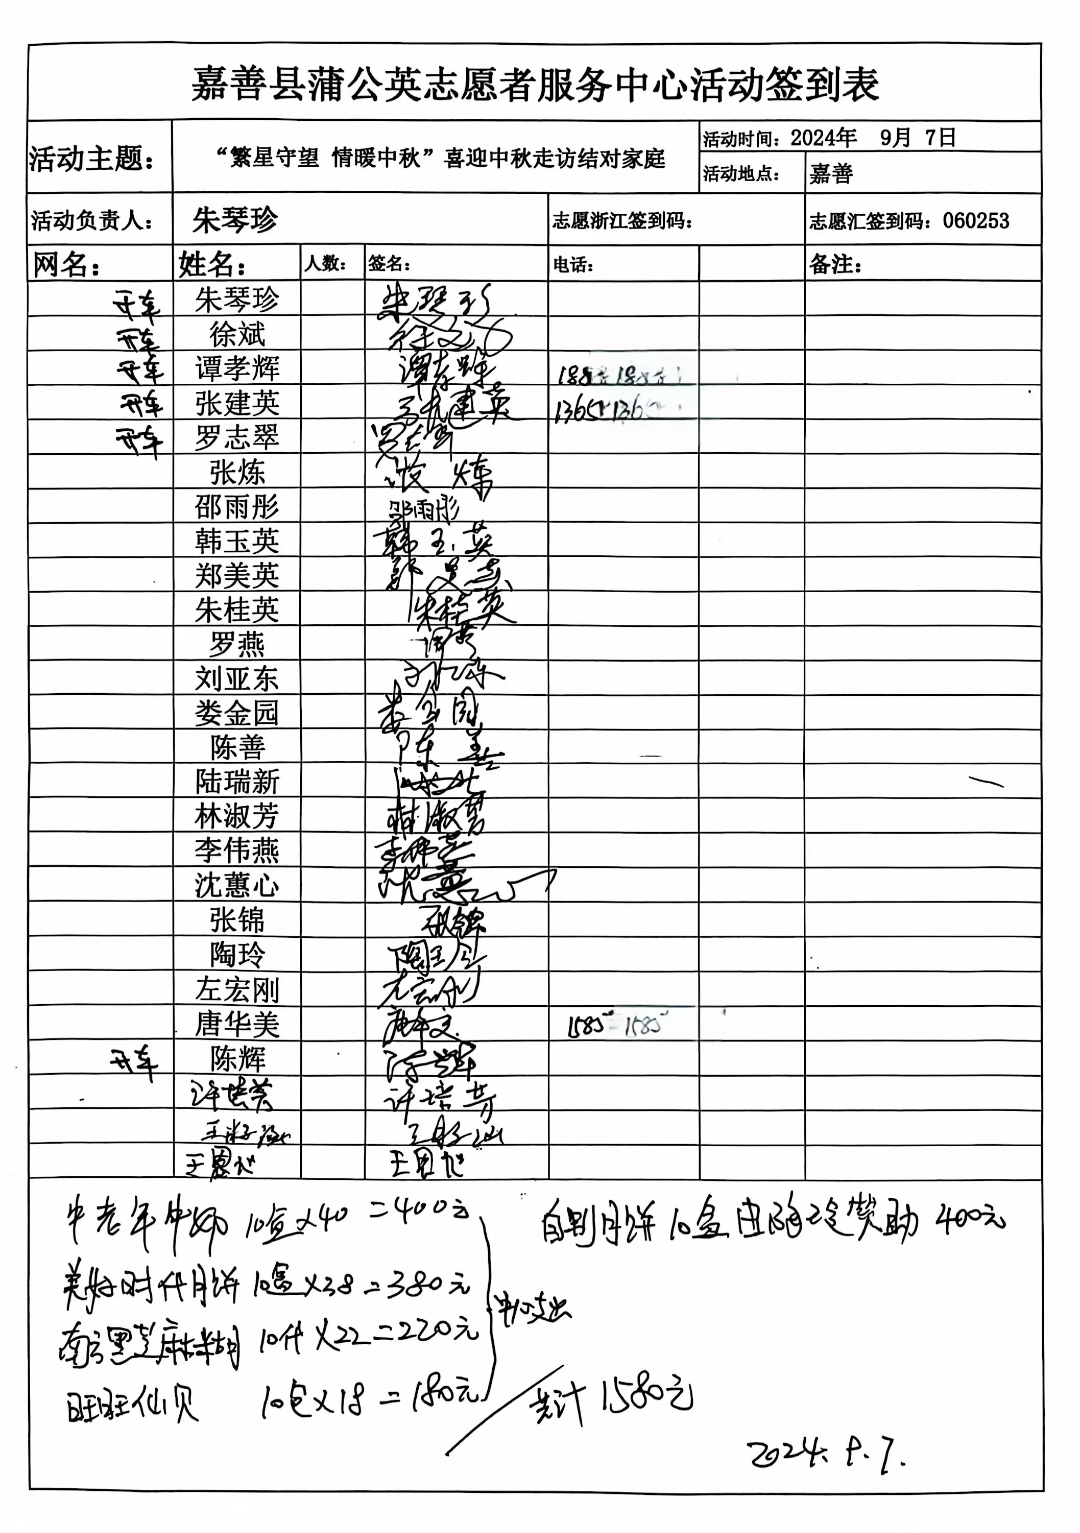 嘉善县蒲公英志愿者服务中心活动签到表
活动主题： “繁星守望 情暖中秋”喜迎中秋走访结对家庭 活动时间：2024年 9月 7日
活动地点： 嘉善
活动负责人： 朱琴珍 志愿浙江签到码： 志愿汇签到码：060253
网名： 姓名： 人数： 签名： 电话： 备注：
开车 朱琴珍 朱琴珍
开车 徐斌 徐文
开车 谭孝辉 谭孝辉 188 188
开车 张建英 张建英 1365 136
开车 罗志翠 罗志翠
张炼 张炼
邵雨彤 邵雨彤
韩玉英 韩玉英
郑美英 郑美英
朱桂英 朱桂英
罗燕
刘亚东 刘亚东
娄金园 娄金园
陈善 陈善
陆瑞新
林淑芳 林淑芳
李伟燕 李伟燕
沈蕙心 沈蕙心
张锦 张锦
陶玲 陶玲
左宏刚 左宏刚
唐华美 唐华美 1585 1585
开车 陈辉 陈辉
许培芳 许培芳
王
王恩
中老年牛奶 10盒×40 =400元 自制月饼 10盒由陶玲赞助 400元
美好时代月饼 10盒×38=380元
中心支出
南方黑芝麻糊 10件×22=220元
旺旺仙贝 10包×18=180元 共计 1580元
2024.9.7.